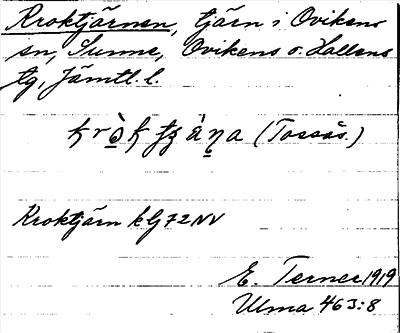 Kroktjärnen, tjärn i Ovikens
sn, Sunne, Ovikens o. Hallens
tg, Jämtl. l.
(Tossås.)
Kroktjärn kbl 72 NV
E. Terner 1919
Ulma 463:8